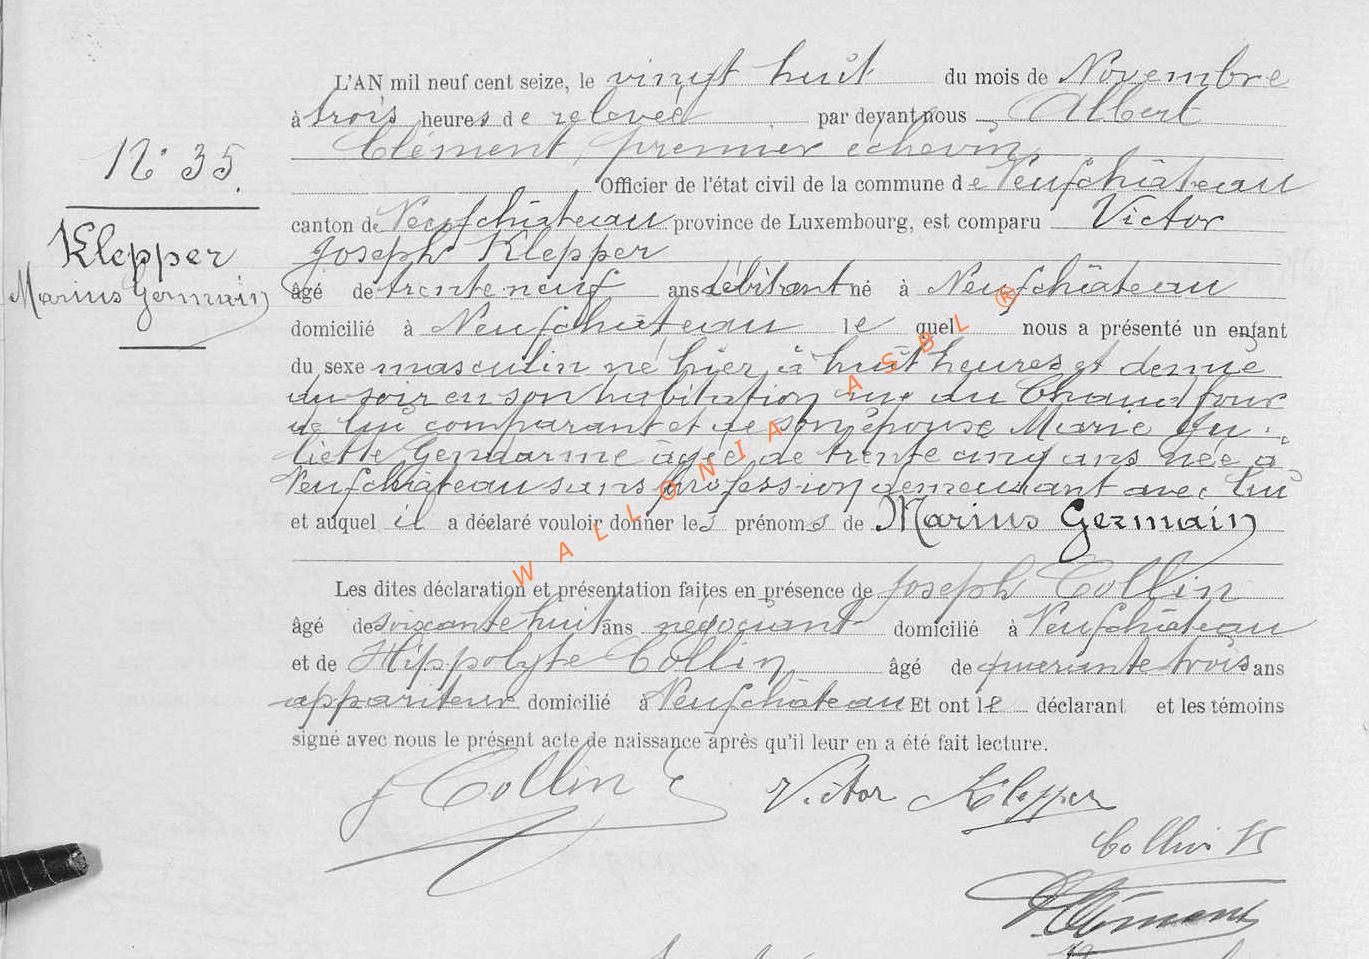 L'AN mil neuf cent seize, le vingt huit du mois de Novembre
à trois heures de relevée par devant nous Albert
Clément, premier échevin,
Officier de l'état civil de la commune de Neufchâteau
N° 35.
canton de Neufchâteau province de Luxembourg, est comparu Victor
Joseph Klepper
Klepper
Marius Germain
âgé de trente neuf ans débitant né à Neufchâteau
domicilié à Neufchâteau lequel nous a présenté un enfant
du sexe masculin né hier à huit heures et demie
du soir en son habitation rue du Chaud four
de lui comparant et de son épouse Marie Ju-
liette Gendarme âgée de trente cinq ans née à
Neufchâteau sans profession demeurant avec lui
et auquel il a déclaré vouloir donner les prénoms de Marius Germain
Les dites déclaration et présentation faites en présence de Joseph Collin
âgé de soixante huit ans négociant domicilié à Neufchâteau
et de Hippolyte Collin âgé de quarante trois ans
appariteur domicilié à Neufchâteau Et ont le déclarant et les témoins
signé avec nous le présent acte de naissance après qu'il leur en a été fait lecture.
J Collin Victor Klepper
Collin H
Clément
WALLONIA ASBL ®